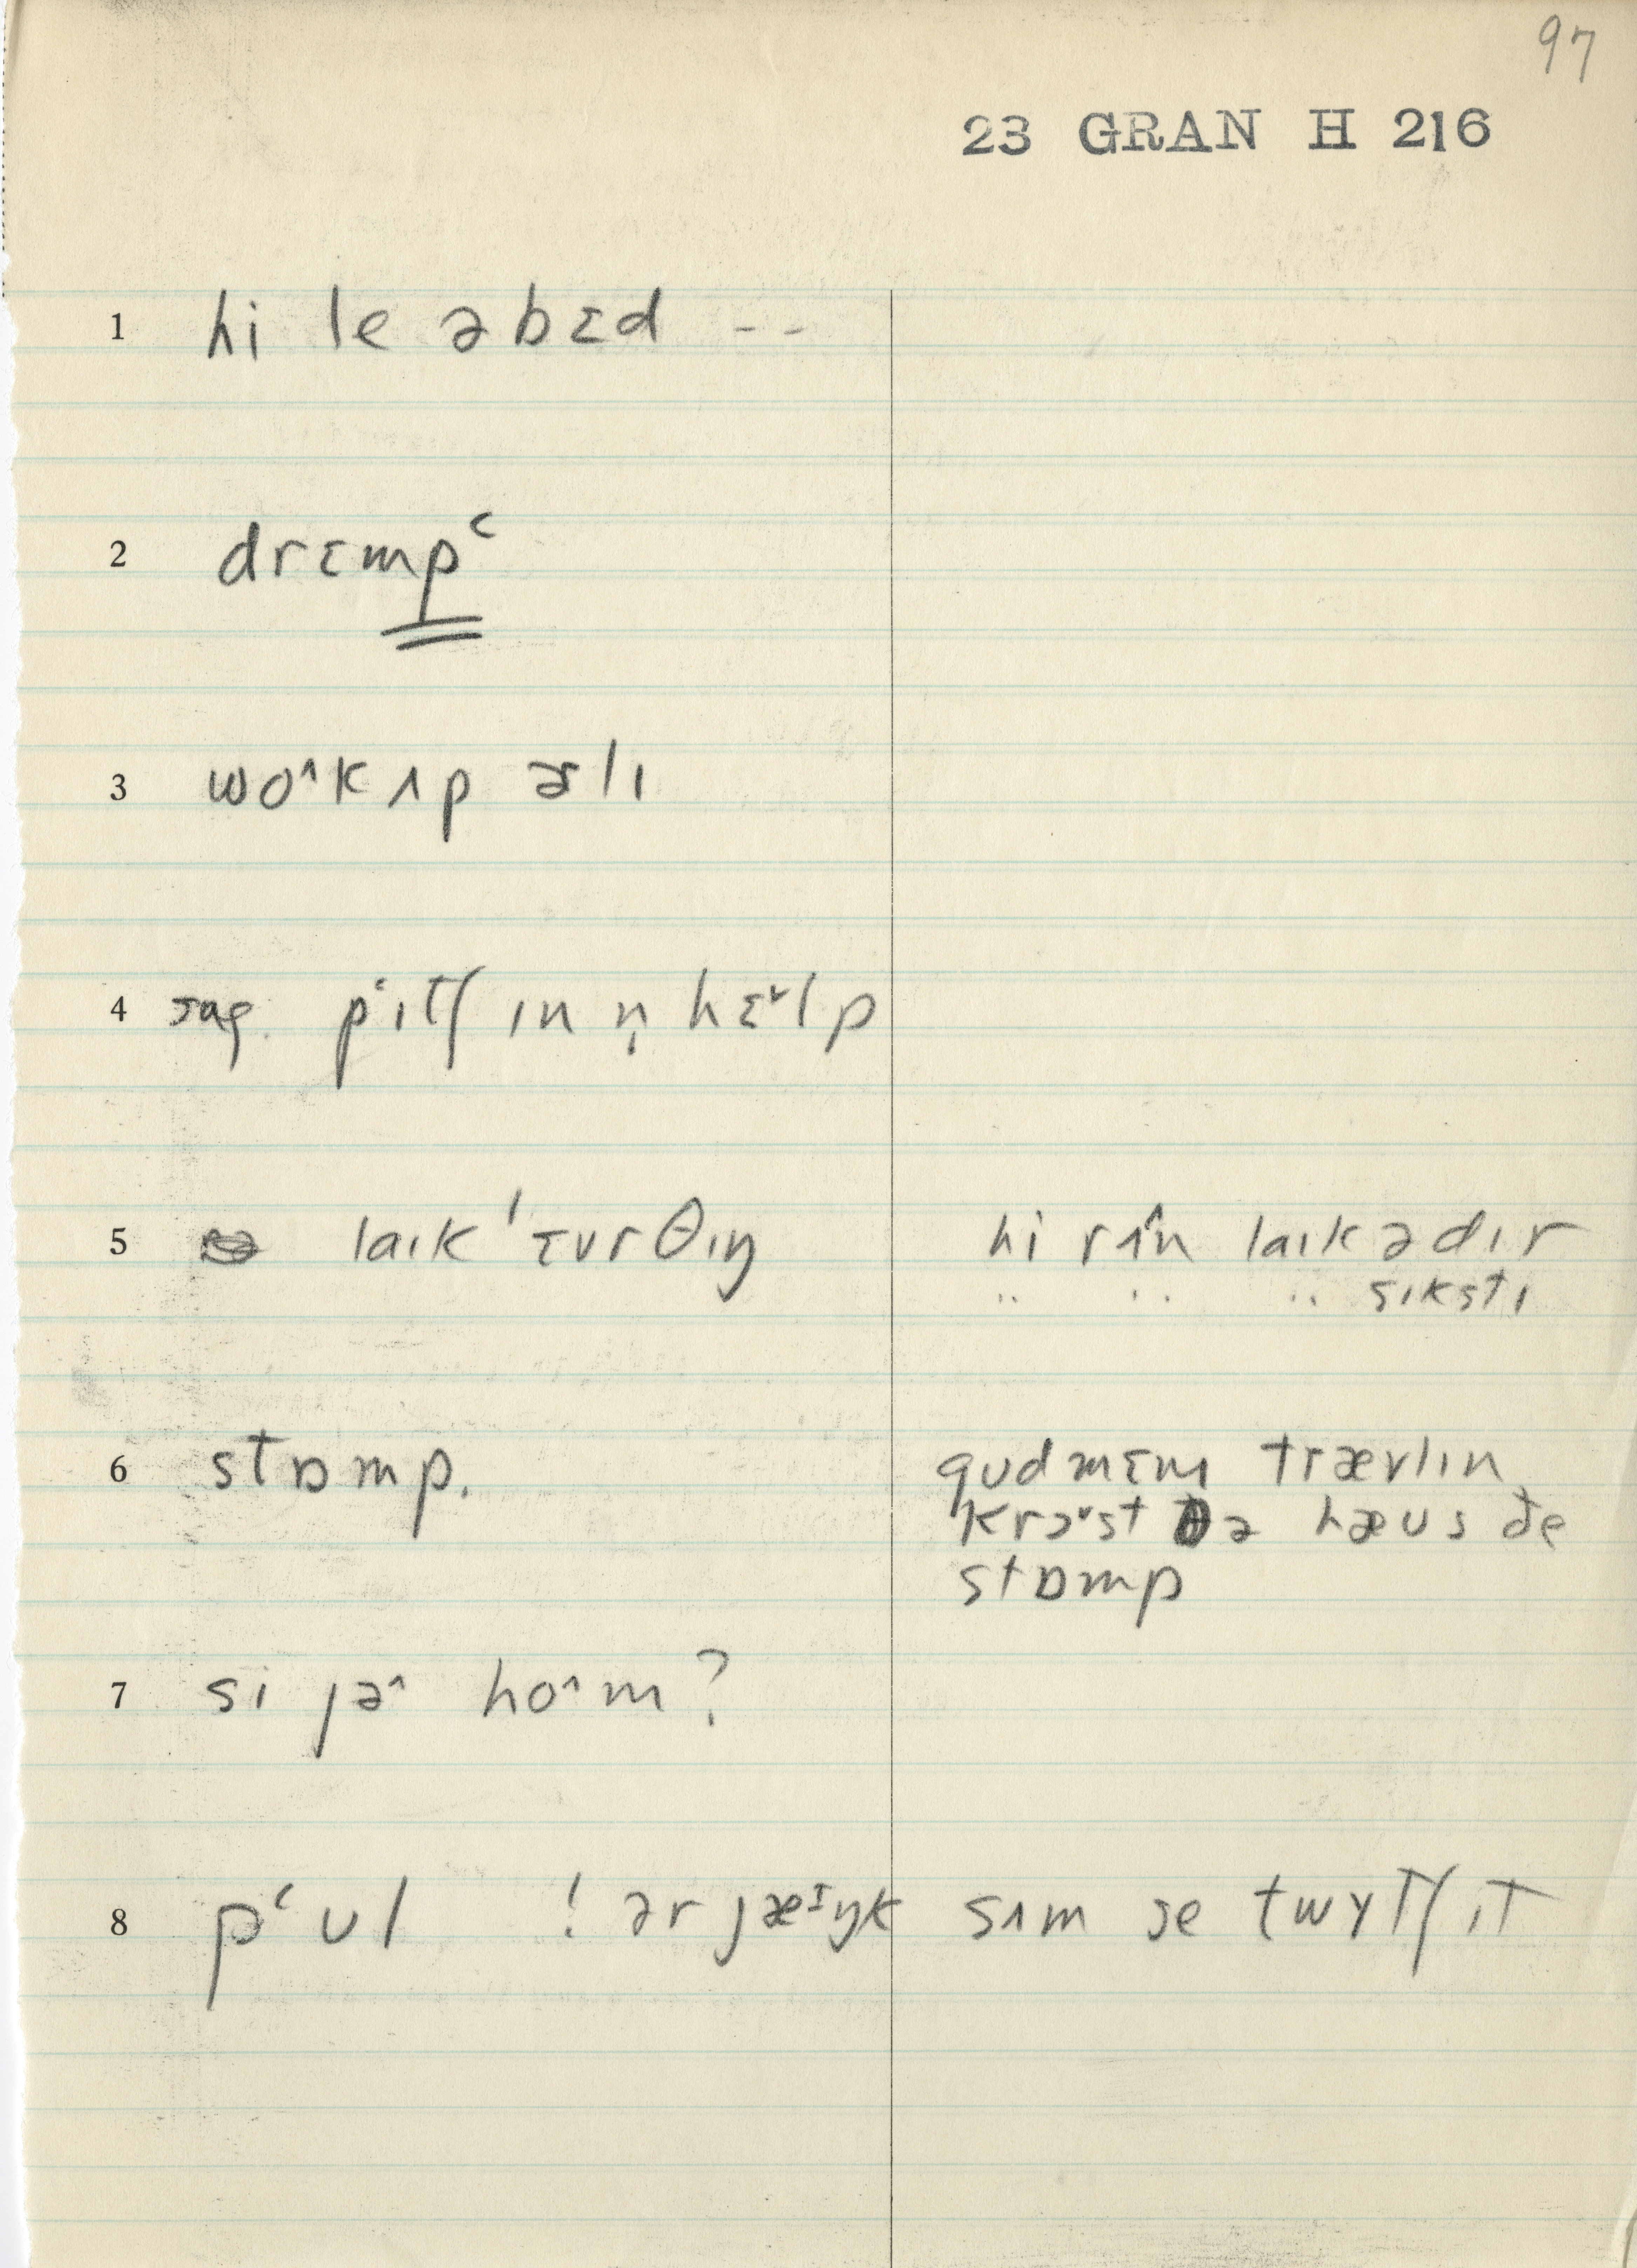 97
23 GRAN H 216
1 hi le əbɛd --
2 drɛmpʿ
3 wo˄k ʌp ɚlɪ
4 sug. pʿɪtʃ ɪn n̩ hɛ˅lp
5 laɪk 'ɛvrθɪŋ hi rʌ̂n laɪk ə dɪr
" " " sɪkstɪ
6 stɒmp. gʊdmɛni trævlɪn
krɔ˅st ðə hæʊs ðe
stɒmp
7 si jə˄ ho˄m?
8 pʿʊl ! ər jæᶦŋk sʌm se twɪtʃ ɪt